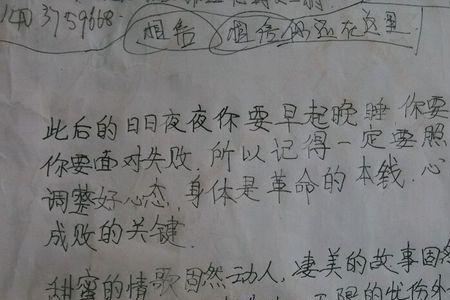 3759668.
相信 相信你还在这里
此后的日日夜夜你要早起晚睡.你要
你要面对失败.所以记得一定要照
调整好心态.身体是革命的本钱.心
成败的关键.
甜蜜的情歌固然动人.凄美的故事固然